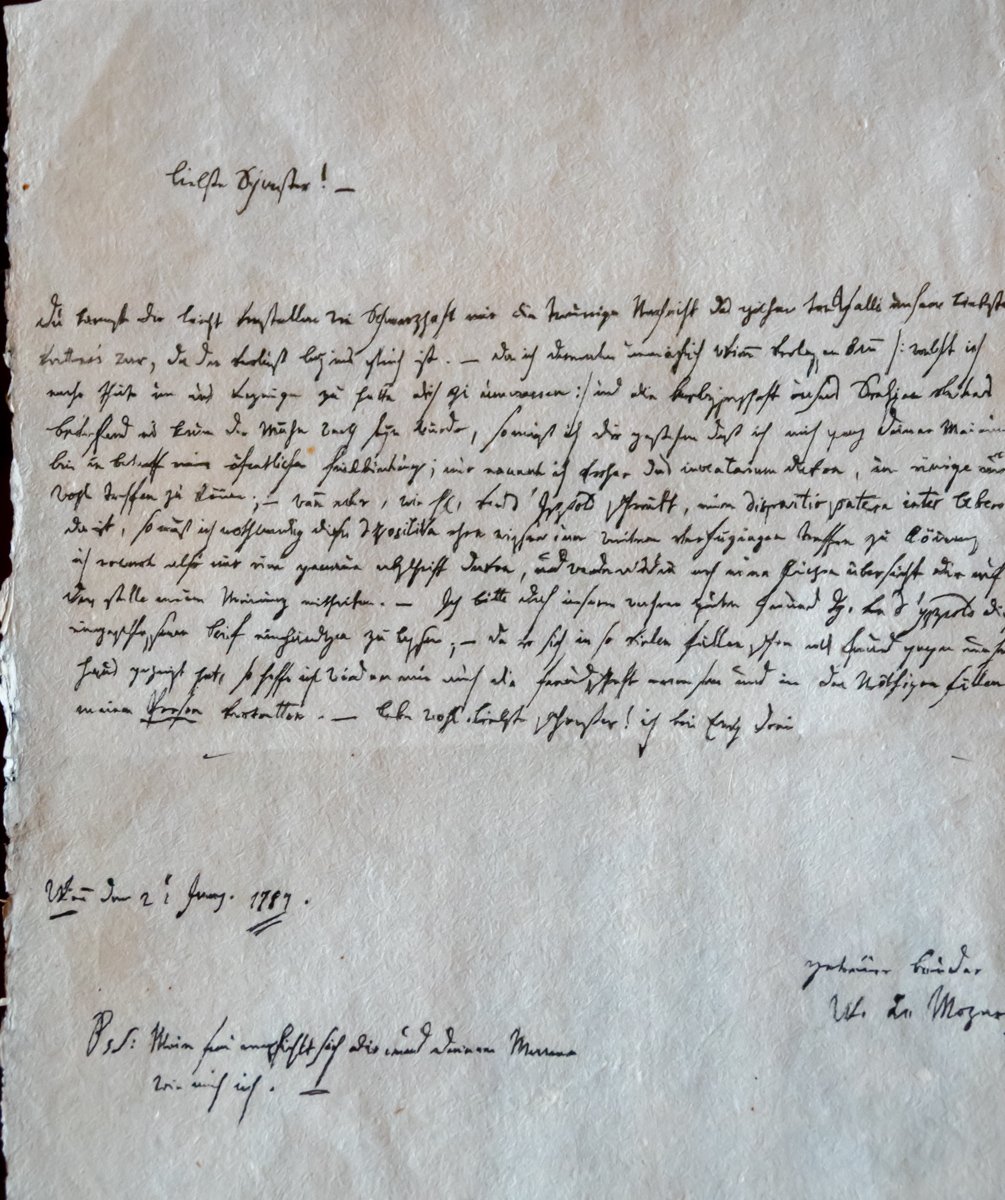 liebste Schwester! —
Du kannst dir leicht vorstellen wie Schmerzhaft mir die traurige Nachricht des gähen todfalls unseres liebsten
Vaters war, da der verlust bey uns gleich ist. — da ich dermalen unmöglich Wien verlassen kann /: welches ich
mehr thäte um das vergnügen zu haben dich zu umarmen :/ und die verlassenschaft unsers Seeligen Vaters
betreffend es kaum der Mühe werth seyn würde, so muß ich dir gestehen daß ich auch ganz deiner Meinung
bin in betreff einer öfentlichen feilbiethung; nur erwarte ich vorher das inventarium davon, um einige
treffen zu können; — wenn aber, wie H: d'Yppold schreibt, eine dispositio paterna inter liberos
da ist, so muß ich nothwendig diese dispositio wissen um weitere verfügungen treffen zu können;
ich erwarte also nur eine genaue abschrift davon, und werde nach einer kurzen übersicht dir auf
der stelle meine Meinung mittheilen. — Ich bitte dich unserm wahren guten freund H: d'yppold
eingeschlossenen brief einhändigen zu lassen; — da er sich in so vielen fällen schon als freund gegen unser
haus gezeigt hat, so hoffe ich wird er mir auch die freundschaft erweisen und in den Nöthigen fällen
meine Person vertretten. — lebe wohl liebste schwester! ich bin Ewig dein
Wien den 2:t Juny. 1787.
getreuer bruder
W. A. Mozar
P.S: Meine frau empfiehlt sich dir und deinem Manne
wie auch ich. —